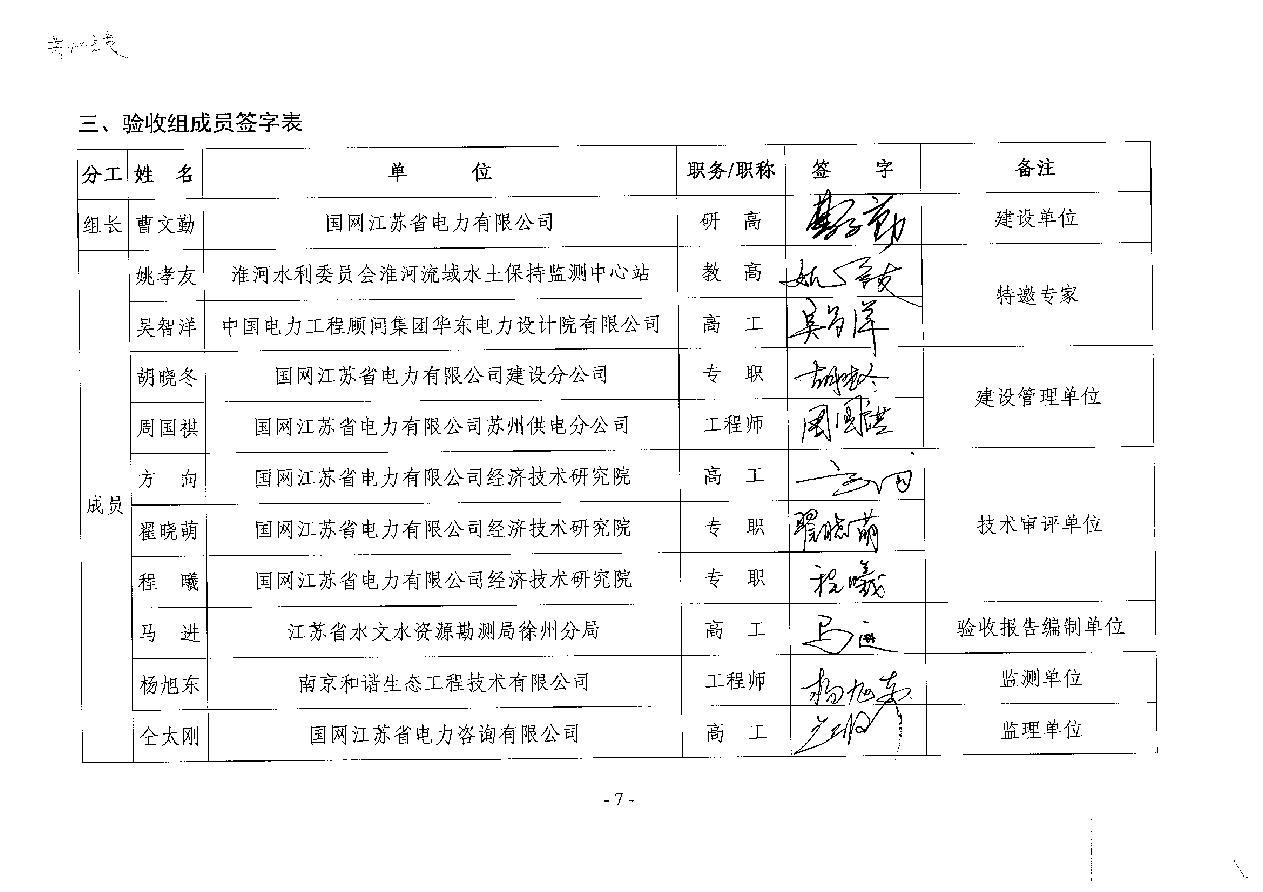 三、验收组成员签字表
分工 姓 名 单 位 职务/职称 签 字 备注
组长 曹文勤 国网江苏省电力有限公司 研 高 曹文勤 建设单位
成员
姚孝友 淮河水利委员会淮河流域水土保持监测中心站 教 高 姚孝友 特邀专家
吴智洋 中国电力工程顾问集团华东电力设计院有限公司 高 工 吴智洋
胡晓冬 国网江苏省电力有限公司建设分公司 专 职 胡晓冬 建设管理单位
周国祺 国网江苏省电力有限公司苏州供电分公司 工程师 周国祺
方 向 国网江苏省电力有限公司经济技术研究院 高 工 方向 技术审评单位
翟晓萌 国网江苏省电力有限公司经济技术研究院 专 职 翟晓萌
程 曦 国网江苏省电力有限公司经济技术研究院 专 职 程曦
马 进 江苏省水文水资源勘测局徐州分局 高 工 马进 验收报告编制单位
杨旭东 南京和谐生态工程技术有限公司 工程师 杨旭东 监测单位
仝太刚 国网江苏省电力咨询有限公司 高 工 监理单位
- 7 -